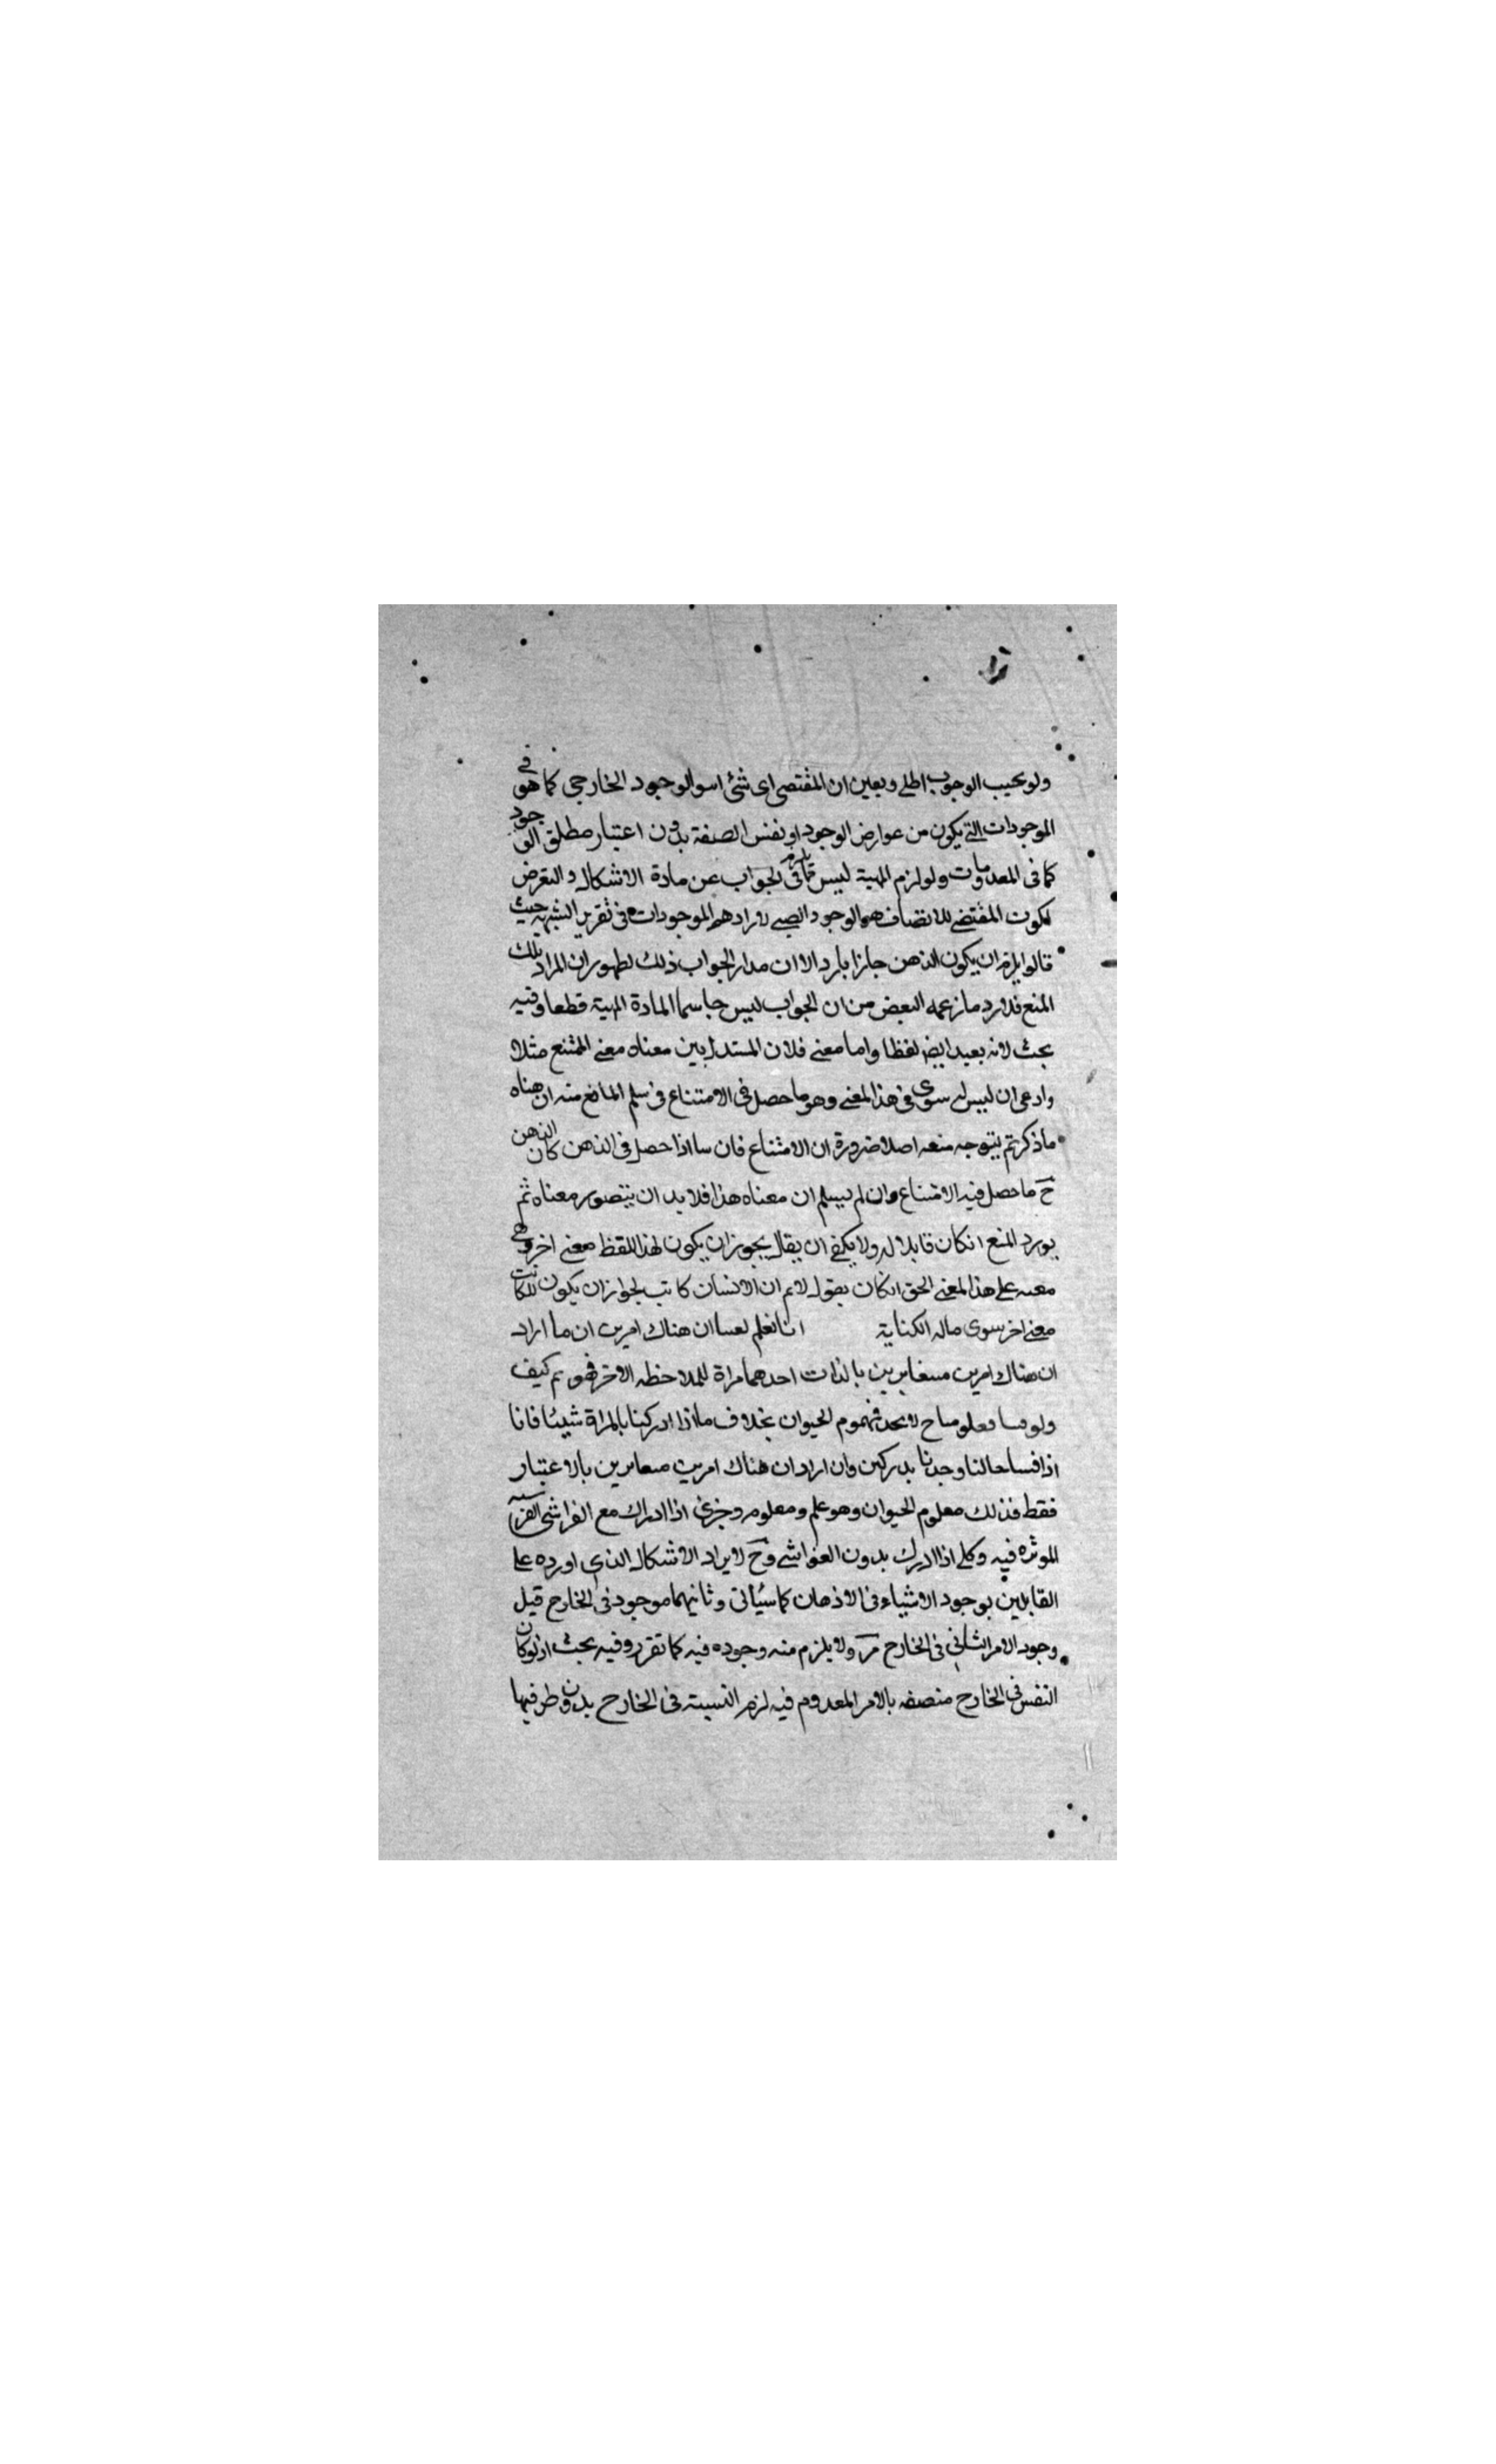 ولو يجيب الوجوب اطلى وبعين ان المقتصى اى شئ اسوالوجود الخارجى كما هو فى
الموجودات التى يكون من عوارض الوجود او نفس الصنفة بدون اعتبار مطلق الوجود
كما فى المعدومات ولو لزم المهية ليس قما فى الجواب عن مادة الاشكال والتعرض
لكون المقتضى للاتصاف هو الوجود فى تقرير الشبهة حيث
قالوا يلزم ان يكون الذهن حارا باردا الا ان مدار الجواب ذلك لظهور ان المراد بذلك
المنع فلا يرد ما زعمه البعض من ان الجواب ليس حاسما المادة المهية قطعا وفيه
بحث لانه بعيد ايضا لفظا واما معنى فلان المستدل بين معناه معنى الممتنع مثلا
وادعى ان ليس له سوى فى هذا المعنى وهو ما حصل فى الامتناع فى سلم المانع منه ان هناه
ماذكرتم يتوجه منعه اصلا ضرورة ان الامتناع فان سا اذا حصل فى الذهن كان الذهن
ح ما حصل فيه الامتناع وان لم يسلم ان معناه هذا فلا بد ان يتصور معناه ثم
يورد المنع انكان قابلا له ولا يكفى ان يقال يجوز ان يكون لهذا اللفظ معنى اخر
معه على هذا المعنى الحق انكان يقول لانم ان الانسان كاتب لجواز ان يكون للكاتب
معنى اخر سوى ماله الكتابة انا نعلم ان هناك امرين ان ما اراد
ان هناك امرين متغايرين بالذات احدهما مراة للملاحظه الاخر فهو مم كيف
ولو معلوما ح لا نجد مفهوم الحيوان بخلاف ما اذا ادركنا بالمراة شيئا فانا
اذا حالنا وجدنا مدركين وان اراد ان هناك امرين متغايرين بالاعتبار
فقط فذلك معلوم الحيوان وهو علم ومعلوم وجزئى اذا ادراك مع الغواشى
الموثره فيه وكلى اذا ادرك بدون الغواشى وح لا يراد الاشكال الذى اورده على
القابلين بوجود الاشياء فى الاذهان كما سيأتى وثانيهما موجود فى الخارج قيل
وجود الامر الثانى فى الخارج مر ولا يلزم منه وجوده فيه كما تقرر وفيه بحث اذ لو كان
النفس فى الخارج متصفه بالامر المعدوم فيه لزم النسبة فى الخارج بدون طرفيها